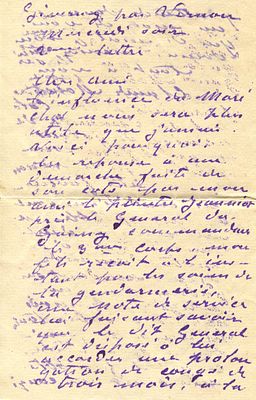 Giverny par Vernon
mercredi soir
mon cher
ami
l'influence du Maré
chal nous sera plus
utile que jamais
voici pourquoi
en réponse à une
démarche faite de
côté par mon
ami le peintre Jeanniot
près le Général du
commandeur
le corps mon
fils reçoit à l'ins-
tant par les soins de
la gendarmerie
une note de service
lui faisant savoir
que le dit Général
est disposé à lui
accorder une prolon
gation de congé de
trois mois, à la